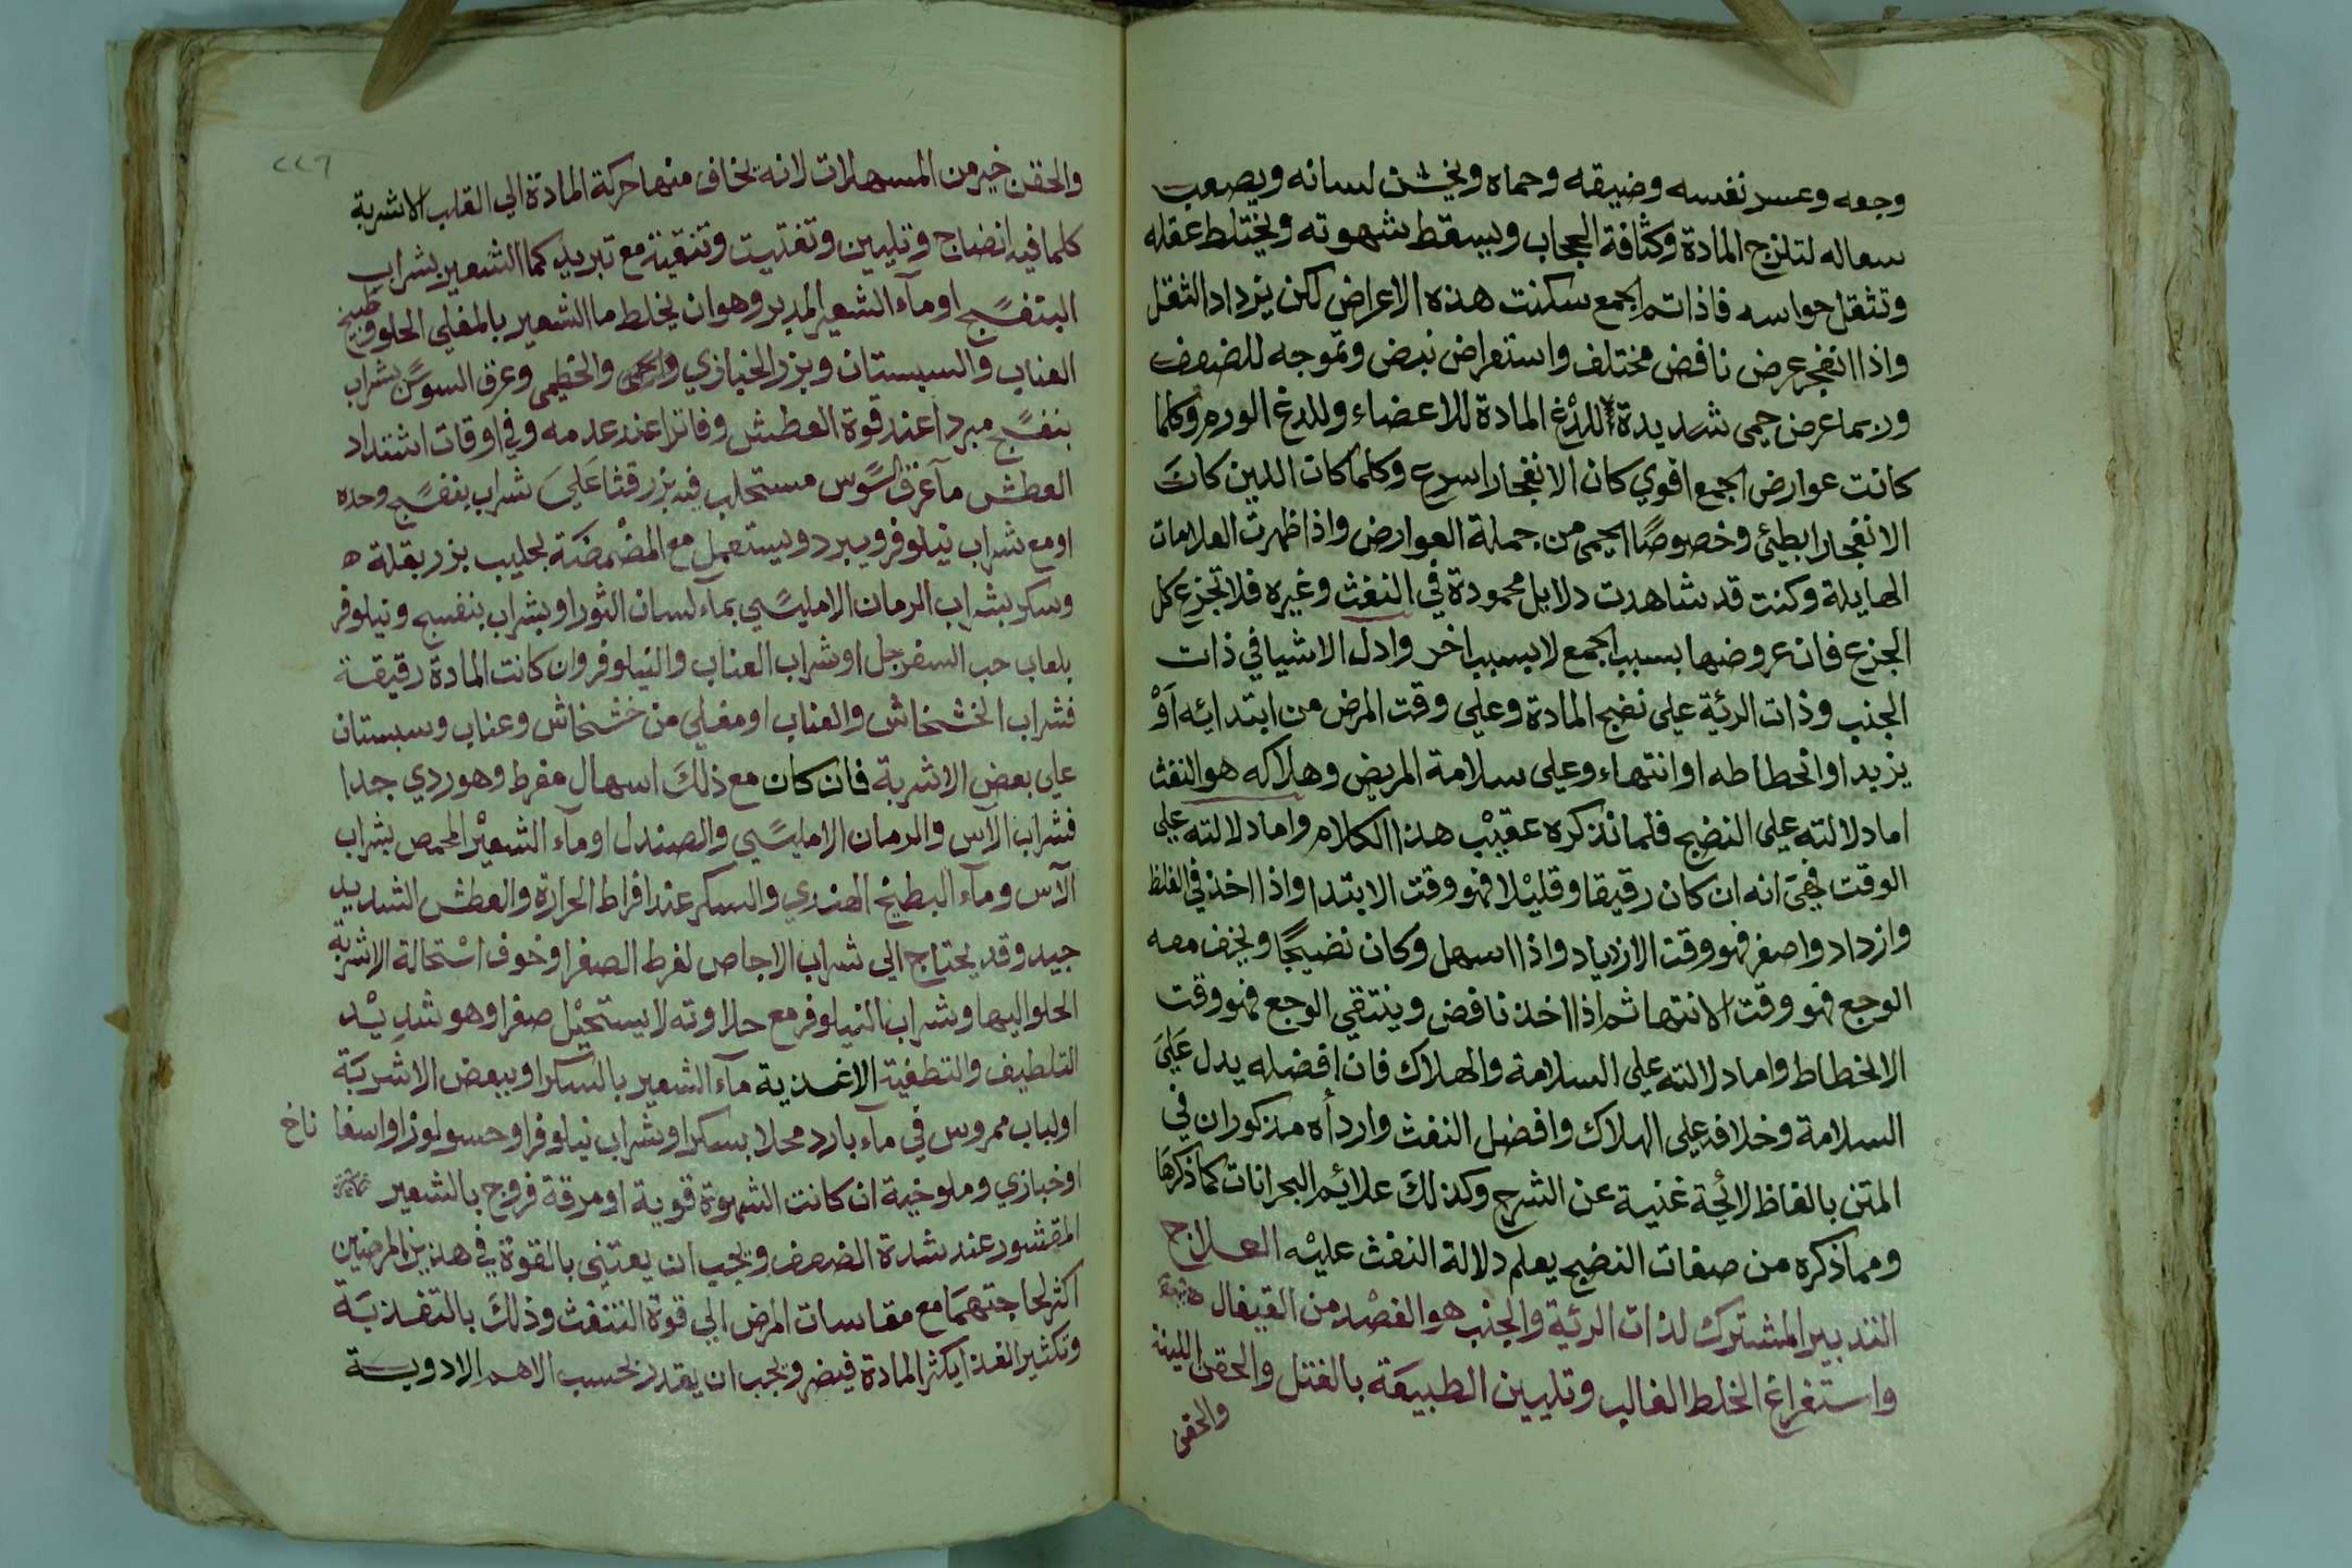 وجعه وعسر نفسه وضيقه وحماه ويخشن لسانه ويصعب
سعاله لتلزج المادة وكثافة الحجاب ويسقط شهوته ويختلط عقله
وتثقل حواسه فاذا تم الجمع سكنت هذه الاعراض لكن يزداد الثقل
واذا انفجر عرض نافض مختلف واستعراض نبض وتموجه للضعف
وربما عرض حمى شديدة للذع المادة للاعضاء وللذع الورم وكلما
كانت عوارض الجمع اقوي كان الانفجار اسرع وكلما كان اللين كان
الانفجار ابطئ وخصوصًا الحمى من جملة العوارض واذا ظهرت العلامات
الهايلة وكنت قد شاهدت دلايل محمودة في النفث وغيره فلا تجزع كل
الجزع فان عروضها بسبب الجمع لا بسبب اخر وادل الاشيا في ذات
الجنب وذات الرئة على نضج المادة وعلي وقت المرض من ابتدائه اَوْ
يزيد او انحطاطه او انتهاء وعلى سلامة المريض وهلاكه هو النفث
اما دلالته على النضج فلما نذكره عقيْب هذا الكلام واما دلالته علي
الوقت فهي انه ان كان رقيقا وقليْلا فهو وقت الابتدا واذا اخذ في الغلظ
وازداد واصفر فهو وقت الازدياد واذا اسهل وكان نضيجًا ويخف معه
الوجع فهو وقت الانتها ثم اذا اخذ نافض وينتقي الوجع فهو وقت
الانحطاط واما دلالته علي السلامة والهلاك فان افضله يدل عَليَ
السلامة وخلافه علي الهلاك وافضل النفث واردأه مذكوران في
المتن بالفاظ لائحة غنية عن الشرح وكذلك علائم البحرانات كما ذكرَها
ومما ذكره من صفات النضج يعلم دلالة النفث عليْه العلاج
التدبير المشترك لذات الرئية والجنب هو الفصْد من القيفال
واستفراغ الخلط الغالب وتليين الطبيعَة بالفتل والحقن اللينة
والحقن
٢٢٦
والحقن خير من المسهلات لانه يخاف منها حركة المادة الي القلب الاشربة
كلما فيه انضاج وتليين وتفتيت وتنقية مع تبريد كما الشعير بشراب
البنفسًج او مآء الشعير المدبر وهو ان يخلط ما الشعير بالمغلي الحلو طبيخ
العناب والسبستان وبزر الخبازي والخطمى وعرق السوسًن بشراب
بنفسًج مبردا عند قوة العطش وفاترا عند عدمه وفي اوقات اشتداد
العطش مآ عرق السًوس مستحلب فيه بزر قثا عَليَ شراب بنفسًج وحده
او مع شراب نيلوفر ويبرد ويستعمل مع المضمضة بحليب بزر بقلة ه
وسكر بشراب الرمان الامليسًي بمآء لسان الثور او بشراب بنفسج ونيلوفر
بلعاب حب السفرجل او شراب العناب والنيلوفر وان كانت المادة رقيقة
فشراب الخشخاش والعناب او مغلي من خشخاش وعناب وسبستان
على بعض الاشربة فان كان مع ذلك اسهال مفرط وهو ردي جدا
فشراب الآس والرمان الامليسًي والصندل او مآء الشعيْر المحمص بشراب
الآس ومآء البطيخ الهندي والسكر عند افراط الحرارة والعطش الشديد
جيد وقد يحتاج الى شراب الاجاص لفرط الصفرا وخوف اسْتحالة الاشربة
الحلو اليها وشراب النيلوفر مع حلاوته لا يستحيْل صفرا وهو شديْد
التلطيف والتطفية الاغذية مآء الشعير بالسكر او ببعض الاشربَة
او لباب ممروس في مآء بارد محلا بسكر او شراب نيلوفر او حسو لوز او اسفاناخ
او خبازي وملوخية ان كانت الشهوة قوية او مرقة فروج بالشعير
المقشور عند شدة الضعف ويجب ان يعتنى بالقوة في هذين المرضين
اكثر لحاجتهمَا مع مقاسات المرض الي قوة التنفث وذلكَ بالتغذيَة
وتكثير الغذا يكثر المادة فيضر ويجب ان يقدر بحسب الاهم الادوية